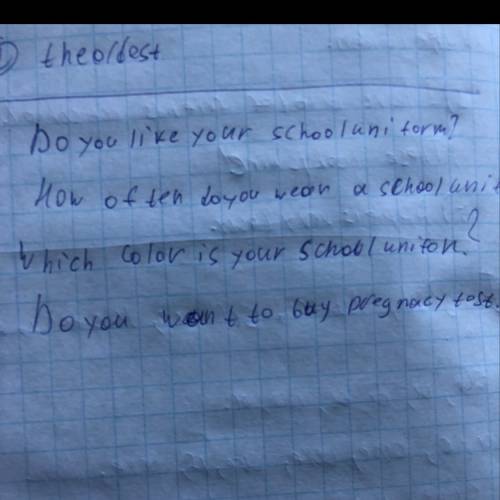 1) the oldest
Do you like your school uniform?
How often do you wear a school unif
Which color is your school uniton?
Do you want to buy pregnacy tost.